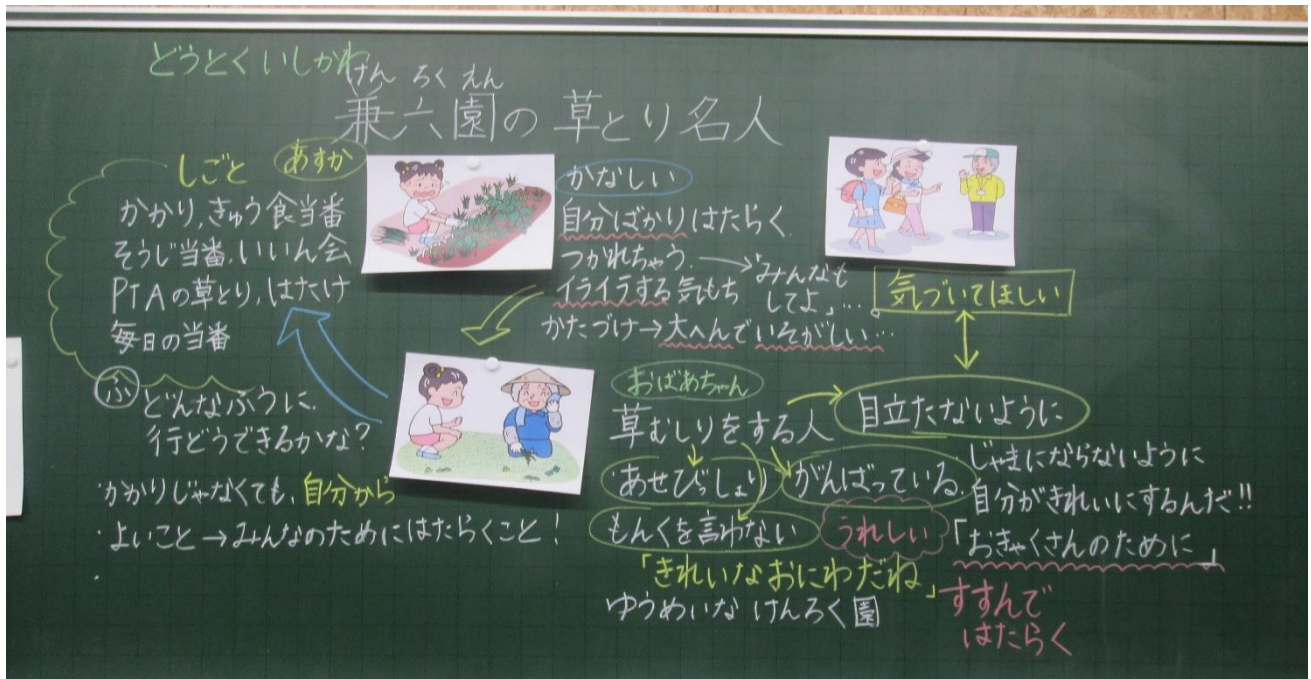 どうとくいしかわ
けんろくえん
兼六園の草とり名人
しごと
あすか
かかり,きゅう食当番
そうじ当番,いいん会
PTAの草とり,はたけ
毎日の当番
ふ
どんなふうに
行どうできるかな?
・かかりじゃなくても、自分から
・よいこと→みんなのためにはたらくこと!
かなしい
自分ばかりはたらく
つかれちゃう →「みんなも
してよ」…。
イライラする気もち
かたづけ→大へんでいそがしい…
気づいてほしい
おばあちゃん
草むしりをする人
目立たないように
あせびっしょり
がんばっている
もんくを言わない
うれしい
「きれいなおにわだね」
ゆうめいな けんろく園
・じゃまにならないように
自分がきれいにするんだ!!
「おきゃくさんのために」
すすんで
はたらく